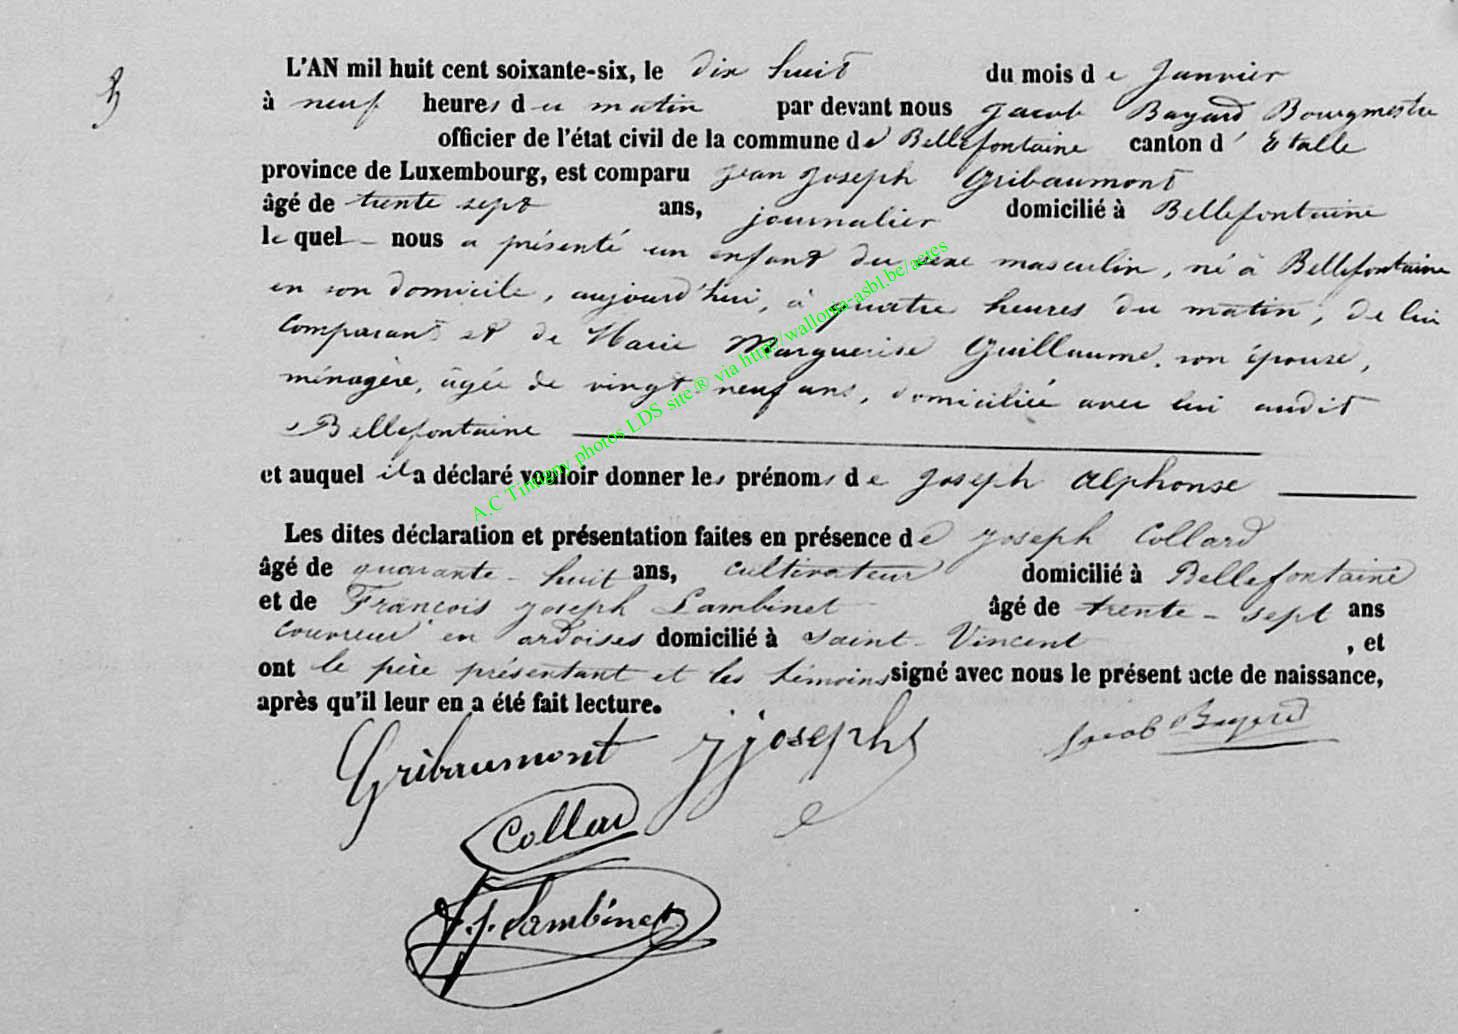 L'AN mil huit cent soixante-six, le dix huit du mois de Janvier
à neuf heures du matin par devant nous Jacob Bayard Bourgmestre
officier de l'état civil de la commune de Bellefontaine canton d' Etalle
province de Luxembourg, est comparu Jean Joseph Gribaumont
âgé de trente sept ans, journalier domicilié à Bellefontaine
lequel nous a présenté un enfant du sexe masculin, né à Bellefontaine
en son domicile, aujourd'hui, à quatre heures du matin, de lui
comparant et de Marie Marguerite Guillaume, son épouse,
ménagère, âgée de vingt-neuf ans, domiciliée avec lui audit
Bellefontaine
et auquel il a déclaré vouloir donner les prénoms de Joseph Alphonse
Les dites déclaration et présentation faites en présence de Joseph Collard
âgé de quarante-huit ans, cultivateur domicilié à Bellefontaine
et de François Joseph Lambinet âgé de trente-sept ans
couvreur en ardoises domicilié à Saint-Vincent, et
ont le père présentant et les témoins signé avec nous le présent acte de naissance,
après qu'il leur en a été fait lecture.
Gribaumont jjoseph Jacob Bayard
Collard
F.J. Lambinet
A.C Tintigny photos LDS site ® via http://wallonia-asbl.be/actes